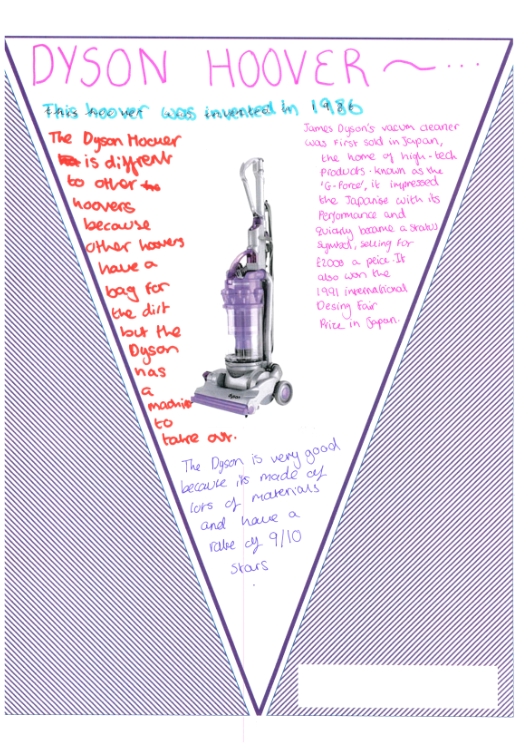 DYSON HOOVER ~ ...
This hoover was invented in 1986
The Dyson Hoover
is diffrent
to other
hoovers
because
other hoovers
have a
bag for
the dirt
but the
Dyson
has
a
machine
to
take out.
James Dyson's vacum cleaner
was first sold in Japan,
the home of high-tech
products. known as the
'G-Force', it impressed
the Japanise with its
Performance and
quickly became a status
symbol, selling for
£2000 a peice. It
also won the
1991 international
Desing Fair
Prize in Japan.
dyson
The Dyson is very good
because its made of
lots of materials
and have a
rate of 9/10
stars
.